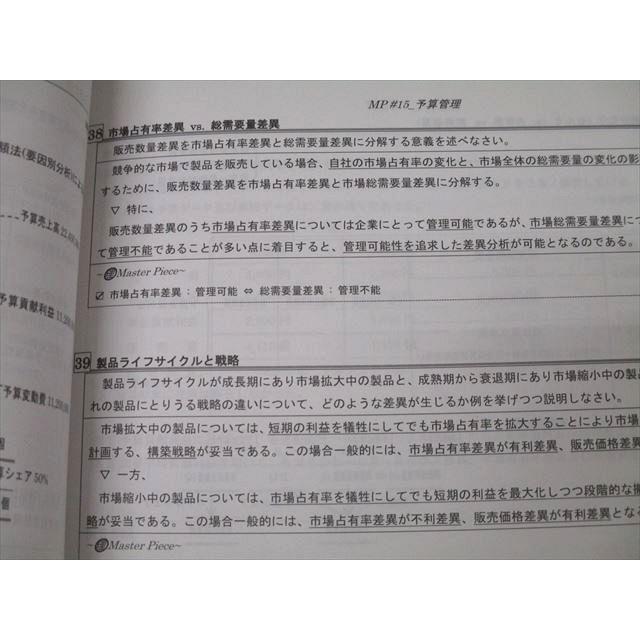 MP #15_予算管理
38 市場占有率差異 vs. 総需要量差異
販売数量差異を市場占有率差異と総需要量差異に分解する意義を述べなさい。
競争的な市場で製品を販売している場合、自社の市場占有率の変化と、市場全体の総需要量の変化の影
するために、販売数量差異を市場占有率差異と市場総需要量差異に分解する。
▽ 特に、
販売数量差異のうち市場占有率差異については企業にとって管理可能であるが、市場総需要量差異に
て管理不能であることが多い点に着目すると、管理可能性を追求した差異分析が可能となるのである。
Master Piece~
☑ 市場占有率差異：管理可能 ⇔ 総需要量差異：管理不能
39 製品ライフサイクルと戦略
製品ライフサイクルが成長期にあり市場拡大中の製品と、成熟期から衰退期にあり市場縮小中の製品
れの製品にとりうる戦略の違いについて、どのような差異が生じるか例を挙げつつ説明しなさい。
市場拡大中の製品については、短期の利益を犠牲にしてでも市場占有率を拡大することにより市場
計画する、構築戦略が妥当である。この場合一般的には、市場占有率差異が有利差異、販売価格差異
▽ 一方、
市場縮小中の製品については、市場占有率を犠牲にしてでも短期の利益を最大化しつつ段階的な
略が妥当である。この場合一般的には、市場占有率差異が不利差異、販売価格差異が有利差異とな
Master Piece~
類法(要因別分析)によ
予算売上高 22,
予算貢献利益 11,2
予算変動費 11,2
個
算シェア 50%
個